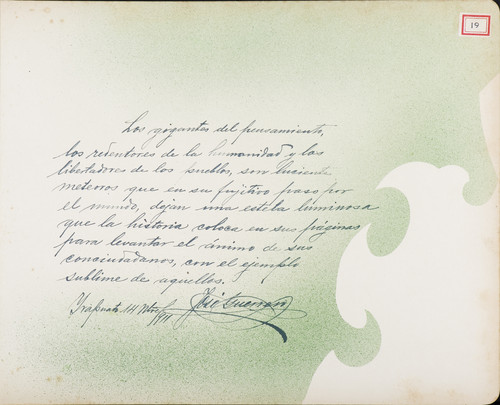 19
Los gigantes del pensamiento,
los redentores de la humanidad y los
libertadores de los pueblos, son lucientes
meteoros que en su fujitivo paso por
el mundo, dejan una estela luminosa
que la historia coloca en sus páginas
para levantar el ánimo de sus
conciudadanos, con el ejemplo
sublime de aquellos.
Irapuato 14
José Guerrero
1911